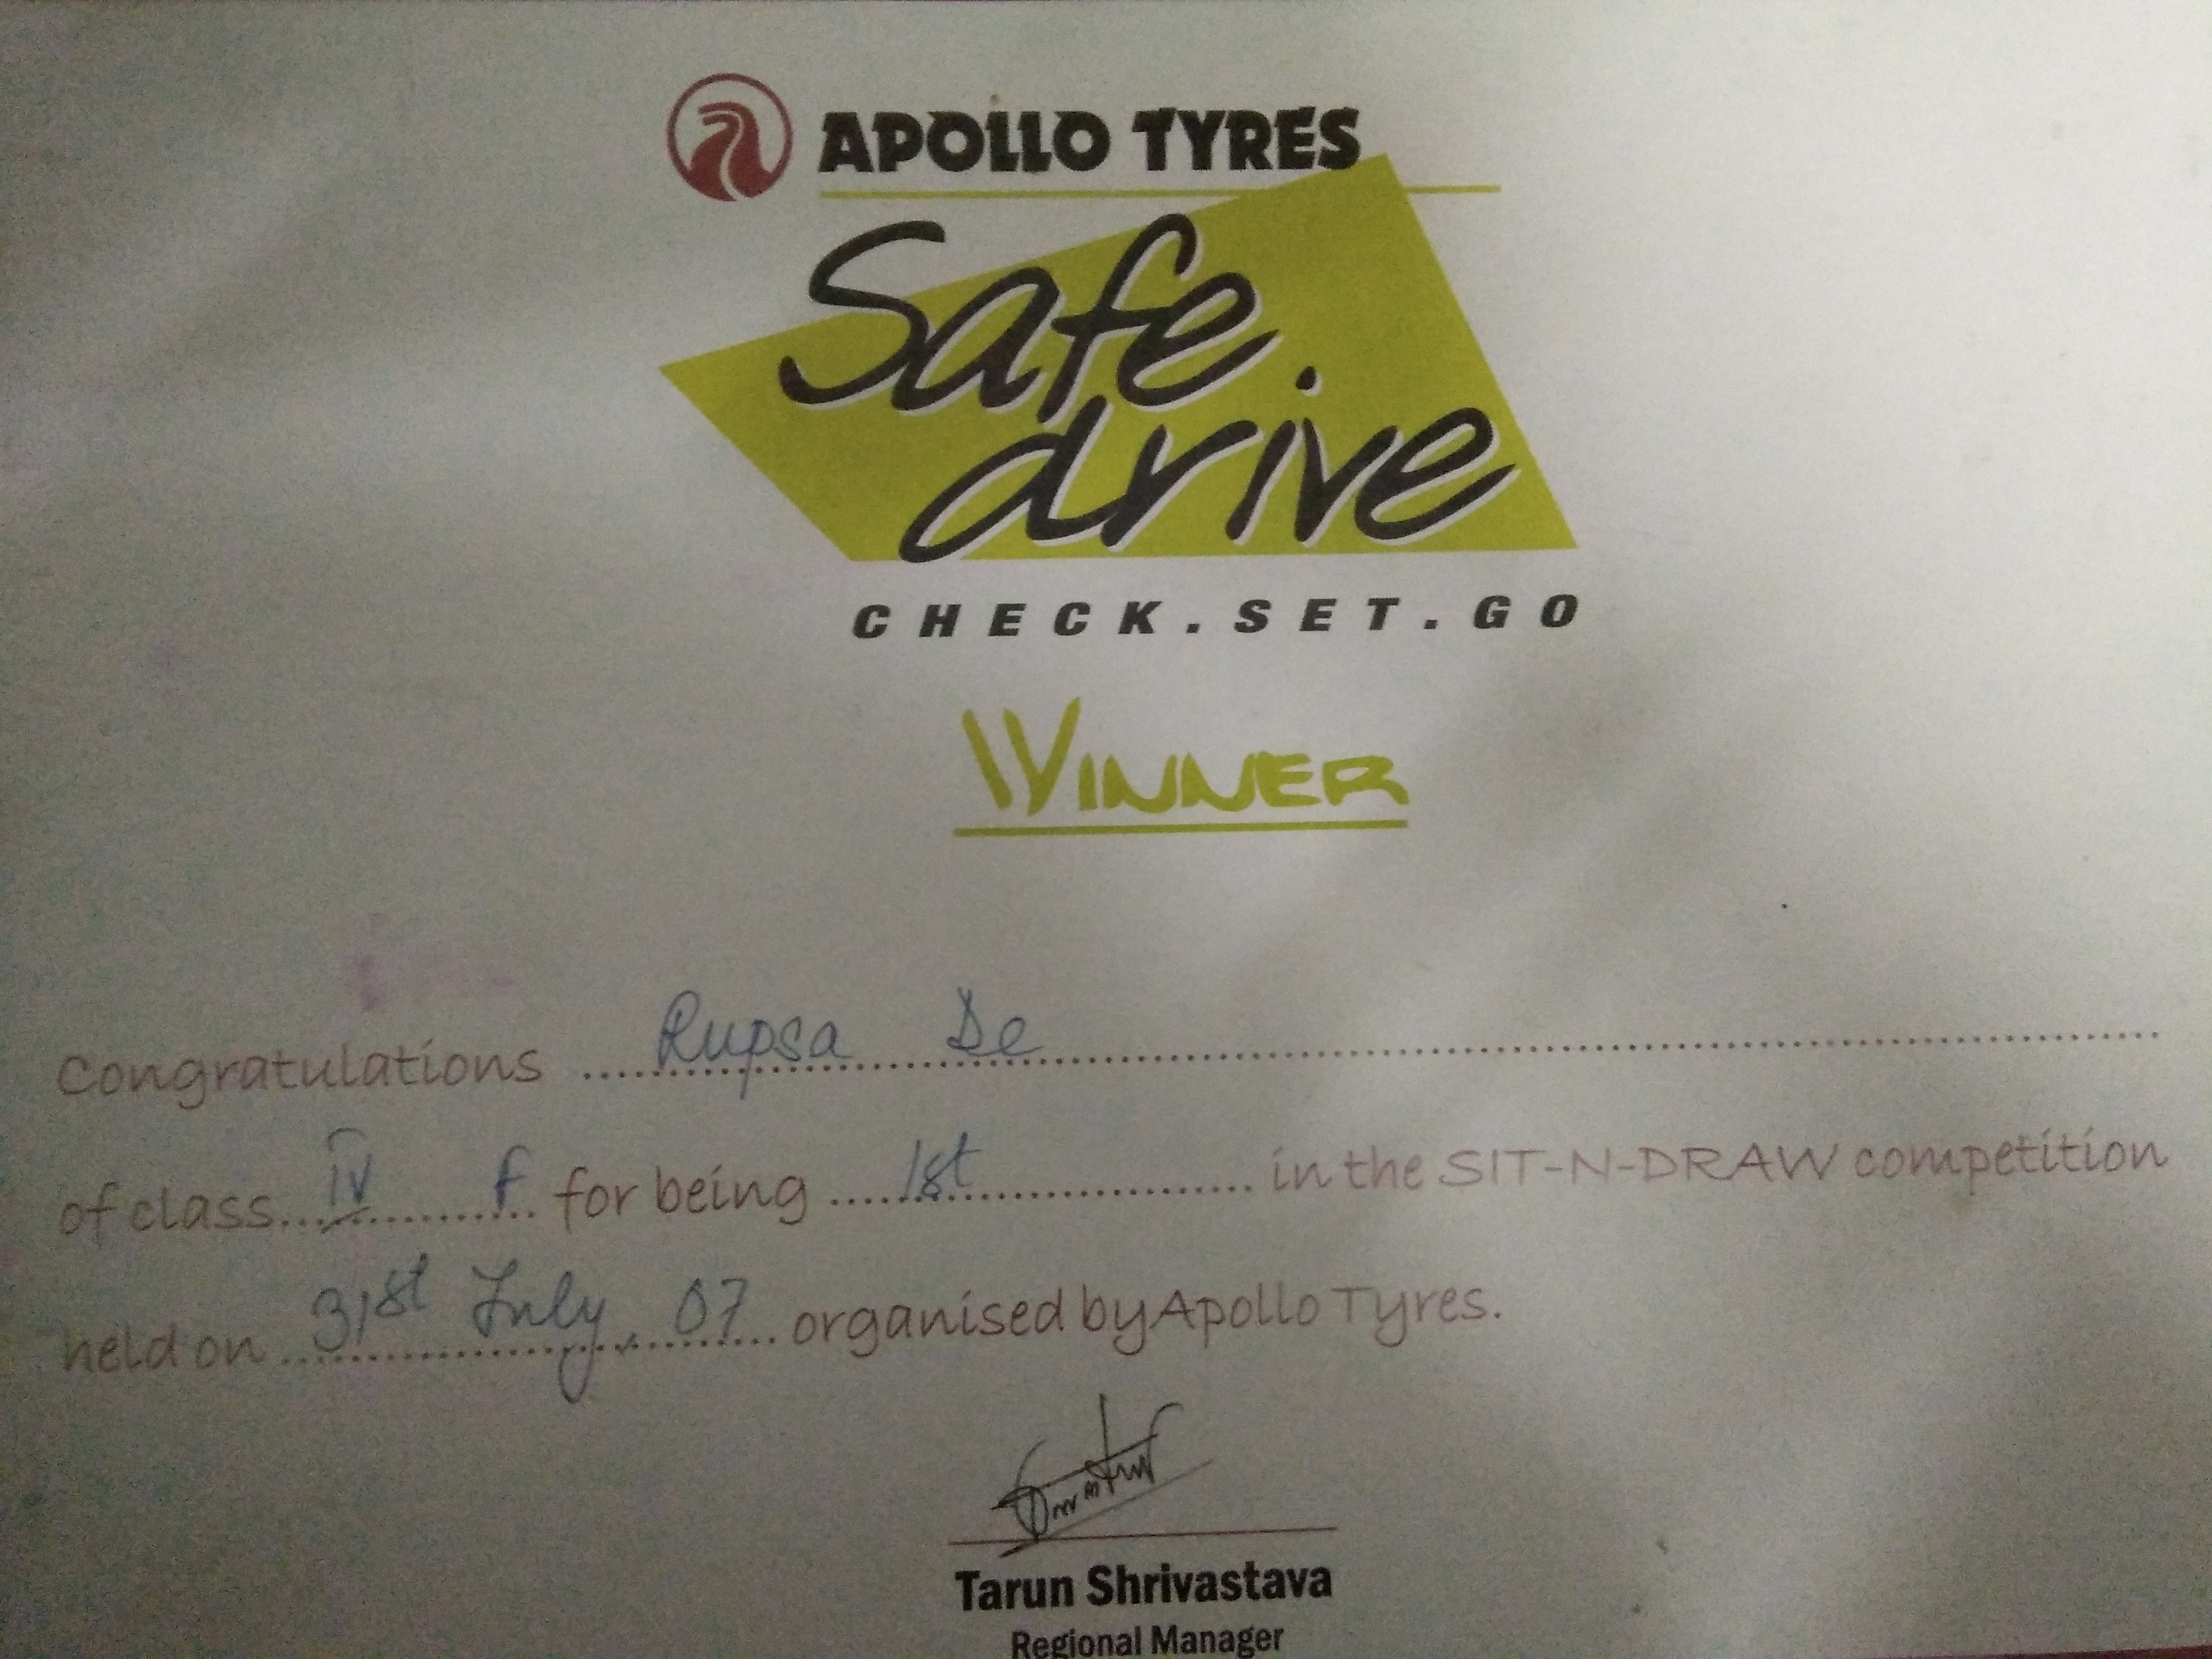 APOLLO TYRES
Safe
drive
CHECK.SET.GO
WINNER
Congratulations Rupsa De
of class IV F for being 1st in the SIT-N-DRAW competition
held on 31st July, 07 organised by Apollo Tyres.
Tarun Shrivastava
Regional Manager